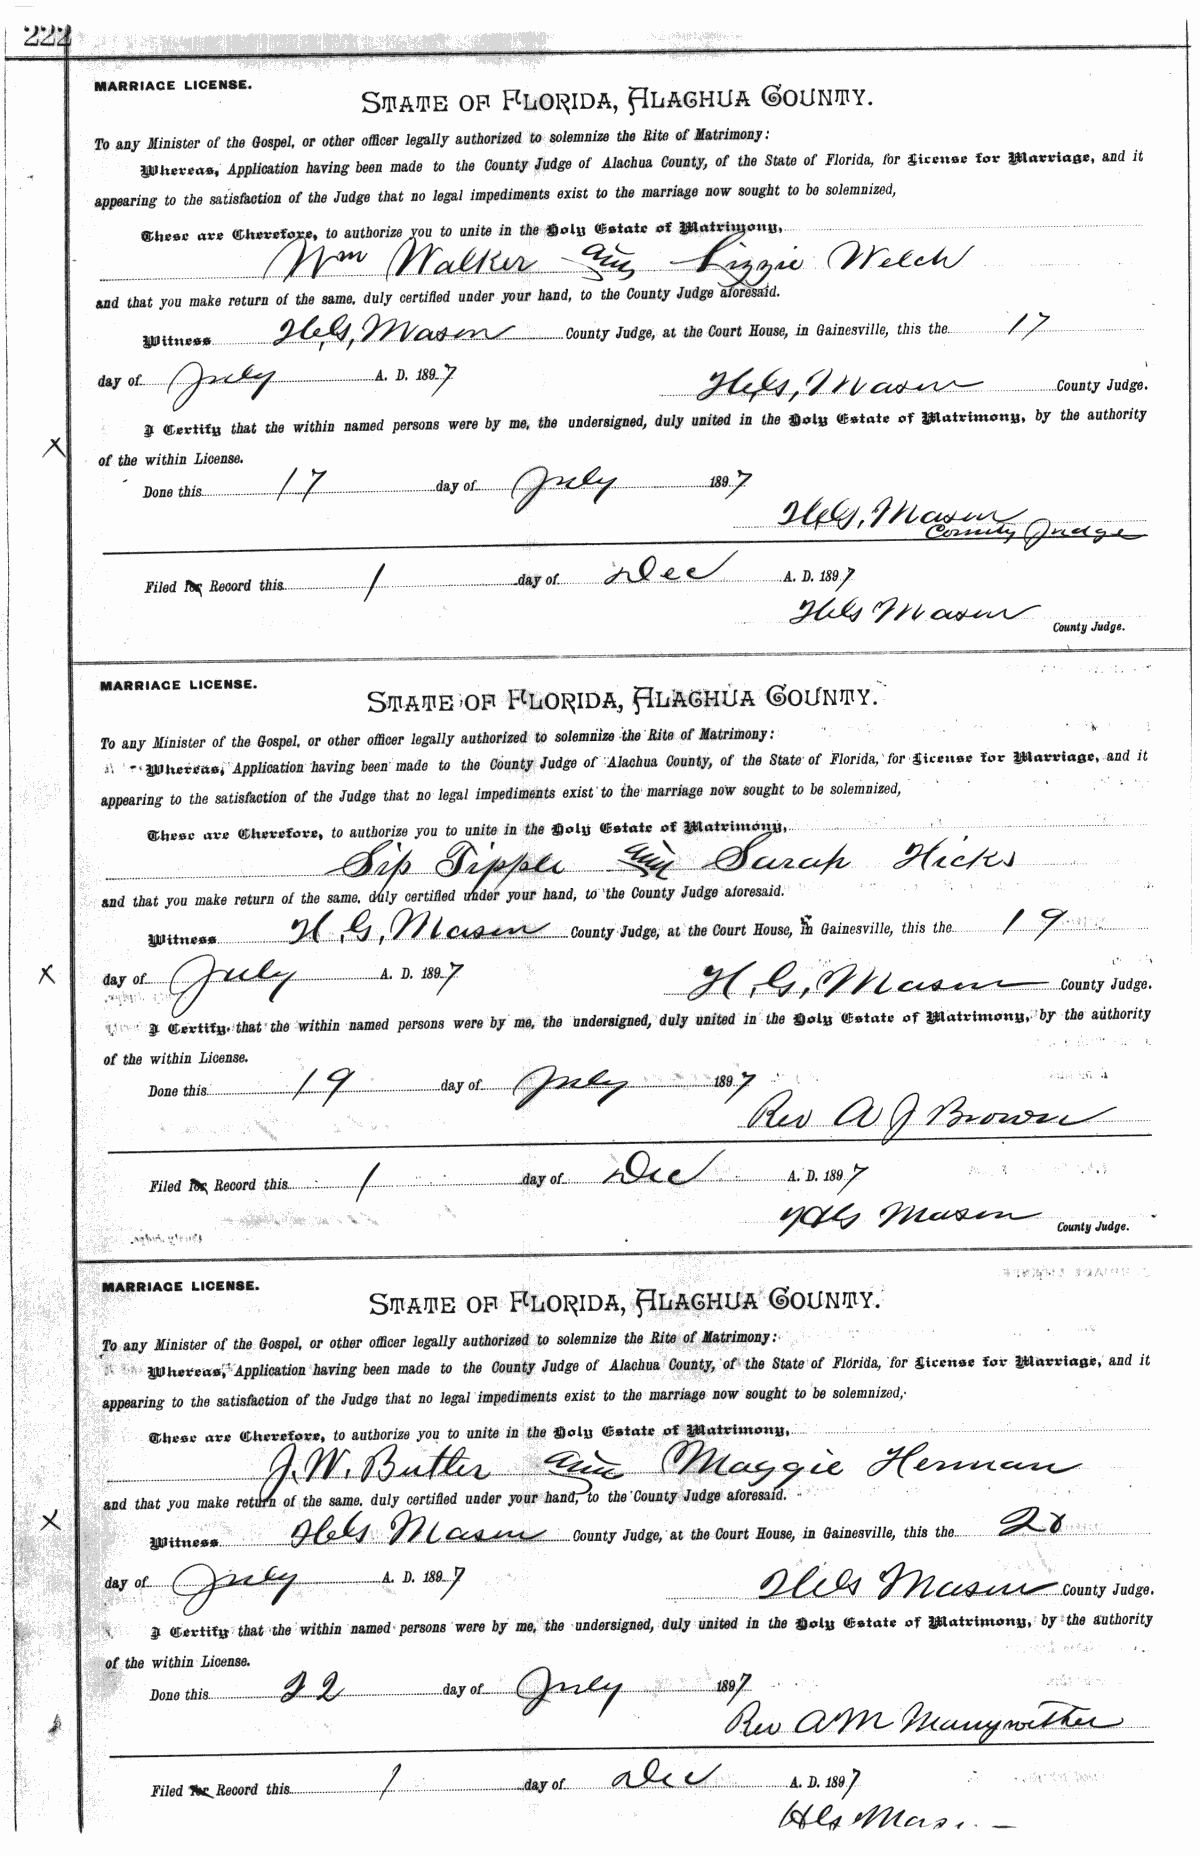 222
MARRIAGE LICENSE.
STATE OF FLORIDA, ALACHUA COUNTY.
To any Minister of the Gospel, or other officer legally authorized to solemnize the Rite of Matrimony:
Whereas, Application having been made to the County Judge of Alachua County, of the State of Florida, for License for Marriage, and it
appearing to the satisfaction of the Judge that no legal impediments exist to the marriage now sought to be solemnized,
These are Therefore, to authorize you to unite in the Holy Estate of Matrimony,
Wm Walker and Lizzie Welch
and that you make return of the same, duly certified under your hand, to the County Judge aforesaid.
Witness H.G. Mason County Judge, at the Court House, in Gainesville, this the 17
day of July A. D. 1897 H.G. Mason County Judge.
I Certify that the within named persons were by me, the undersigned, duly united in the Holy Estate of Matrimony, by the authority
of the within License.
Done this 17 day of July 1897
H.G. Mason
County Judge
Filed for Record this 1 day of Dec A. D. 1897
H.G. Mason
County Judge.
MARRIAGE LICENSE.
STATE OF FLORIDA, ALACHUA COUNTY.
To any Minister of the Gospel, or other officer legally authorized to solemnize the Rite of Matrimony:
Whereas, Application having been made to the County Judge of Alachua County, of the State of Florida, for License for Marriage, and it
appearing to the satisfaction of the Judge that no legal impediments exist to the marriage now sought to be solemnized,
These are Therefore, to authorize you to unite in the Holy Estate of Matrimony,
Sip Tipple and Sarah Hicks
and that you make return of the same, duly certified under your hand, to the County Judge aforesaid.
Witness H.G. Mason County Judge, at the Court House, in Gainesville, this the 19
day of July A. D. 1897 H.G. Mason County Judge.
I Certify that the within named persons were by me, the undersigned, duly united in the Holy Estate of Matrimony, by the authority
of the within License.
Done this 19 day of July 1897
Rev A J Brown
Filed for Record this 1 day of Dec A. D. 1897
H.G. Mason
County Judge.
MARRIAGE LICENSE.
STATE OF FLORIDA, ALACHUA COUNTY.
To any Minister of the Gospel, or other officer legally authorized to solemnize the Rite of Matrimony:
Whereas, Application having been made to the County Judge of Alachua County, of the State of Florida, for License for Marriage, and it
appearing to the satisfaction of the Judge that no legal impediments exist to the marriage now sought to be solemnized,
These are Therefore, to authorize you to unite in the Holy Estate of Matrimony,
J. W. Butler and Maggie Herman
and that you make return of the same, duly certified under your hand, to the County Judge aforesaid.
Witness H.G. Mason County Judge, at the Court House, in Gainesville, this the
day of July A. D. 1897 H.G. Mason County Judge.
I Certify that the within named persons were by me, the undersigned, duly united in the Holy Estate of Matrimony, by the authority
of the within License.
Done this 22 day of July 1897
Rev A M
Filed for Record this 1 day of Dec A. D. 1897
H.G. Mason